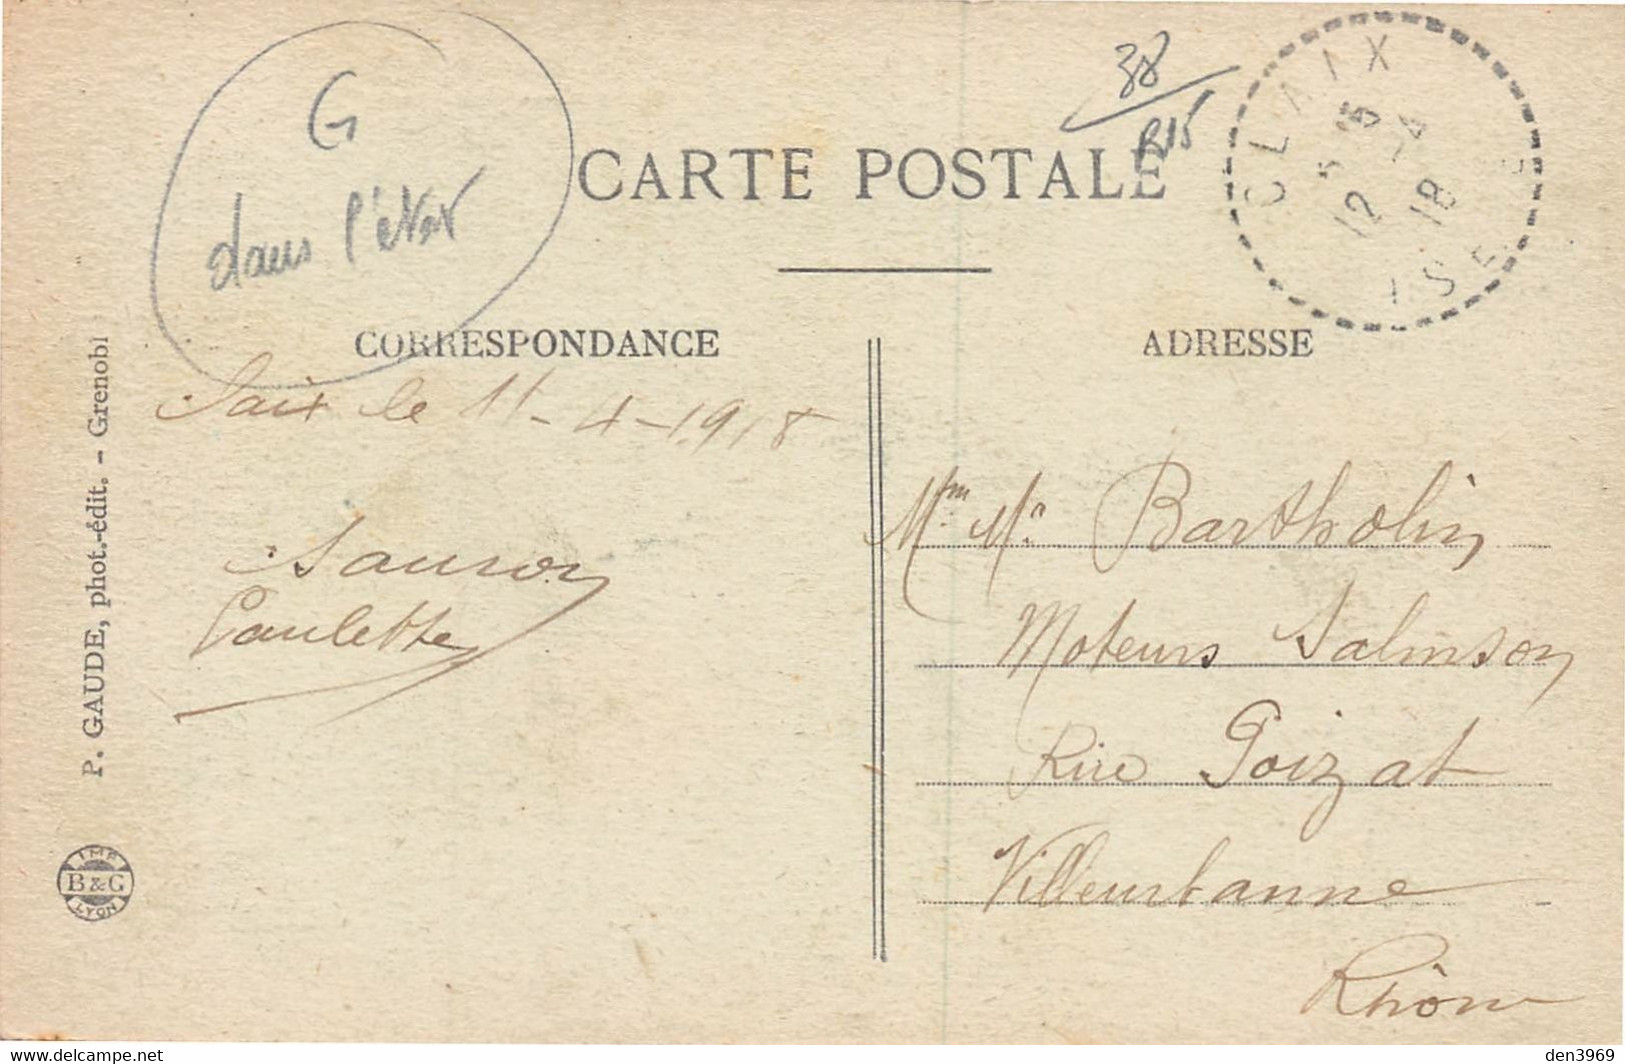 G
dans l'état
38
R15
CARTE POSTALE
CLAIX
12 -4
18
ISERE
CORRESPONDANCE
ADRESSE
le 11-4-1918
Paulette
Mme Mr Bartholin
Moteurs Salmson
Rue Poizat
Villeurbanne
Rhône
P. GAUDE, phot.-édit. - Grenobl
IMP
B&G
LYON
den3969